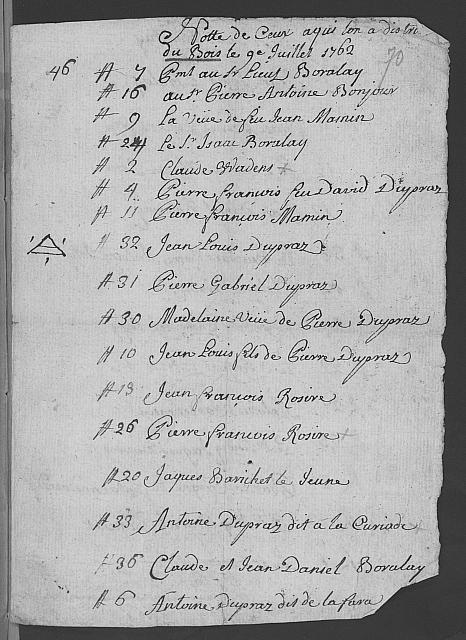 Notte de Ceux a qui lon a distri
du Bois le 9e Juillet 1762
70
46 # 7 Pmt au Sr Lieut Boralay
# 16 au Sr Pierre Antoine Bonjour
# 9 La Veûe de feu Jean Mamin
# 24 Le Sr Isaac Boralay
# 2 Claude Wadens +
# 4 Pierre françois feu David Dupraz
# 11 Pierre françois Mamin
# 32 Jean Louis Dupraz
# 31 Pierre Gabriel Dupraz
# 30 Madelaine Veûe de Pierre Dupraz
# 10 Jean Louis fils de Pierre Dupraz
# 13 Jean françois Rosire
# 26 Pierre françois Rosire +
# 20 Jaques Barichet le Jeune
# 33 Antoine Dupraz dit a la Curiade
# 36 Claude et Jean Daniel Boralay
# 6 Antoine Dupraz dit de la fara